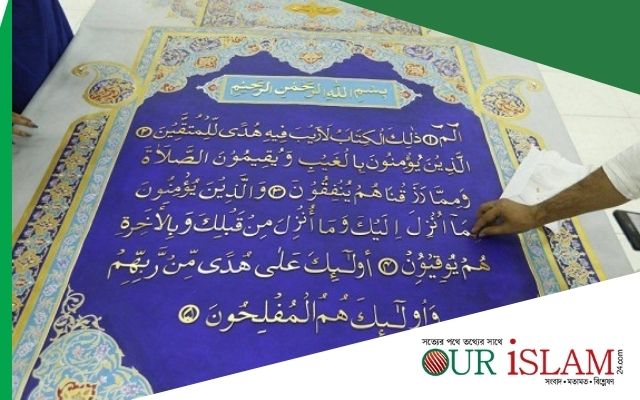 بِسْمِ اللهِ الرَّحْمٰنِ الرَّحِيْمِ
الٓمٓ ۝١ ذٰلِكَ الْكِتَابُ لَارَيْبَ فِيْهِ هُدًى لِّلْمُتَّقِيْنَ ۝٢
الَّذِيْنَ يُؤْمِنُوْنَ بِالْغَيْبِ وَيُقِيْمُوْنَ الصَّلَاةَ
وَمِمَّا رَزَقْنَاهُمْ يُنْفِقُوْنَ ۝٣ وَالَّذِيْنَ يُؤْمِنُوْنَ
مَآ اُنْزِلَ اِلَيْكَ وَمَآ اُنْزِلَ مِنْ قَبْلِكَ وَبِالْاٰخِرَةِ
هُمْ يُوْقِنُوْنَ ۝٤ أُولٰٓئِكَ عَلٰى هُدًى مِّنْ رَّبِّهِمْ
وَاُولٰٓئِكَ هُمُ الْمُفْلِحُوْنَ ۝٥
সত্যের পথে তথ্যের সাথে
OUR iSLAM 24.com
সংবাদ • মতামত • বিশ্লেষণ